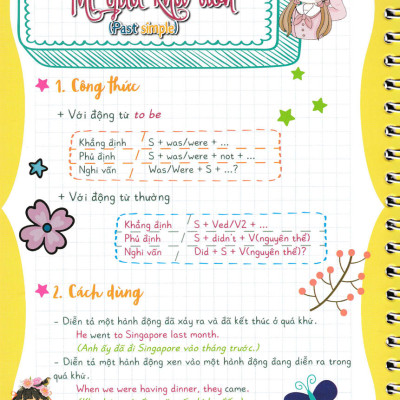 (Past simple)
1. Công thức
+ Với động từ to be
Khẳng định / S + was/were + ...
Phủ định / S + was/were + not + ...
Nghi vấn / Was/Were + S + ...?
+ Với động từ thường
Khẳng định / S + Ved/V2 + ...
Phủ định / S + didn't + V(nguyên thể)
Nghi vấn / Did + S + V(nguyên thể)?
2. Cách dùng
- Diễn tả một hành động đã xảy ra và đã kết thúc ở quá khứ.
He went to Singapore last month.
(Anh ấy đã đi Singapore vào tháng trước.)
- Diễn tả một hành động xen vào một hành động đang diễn ra trong
quá khứ.
When we were having dinner, they came.